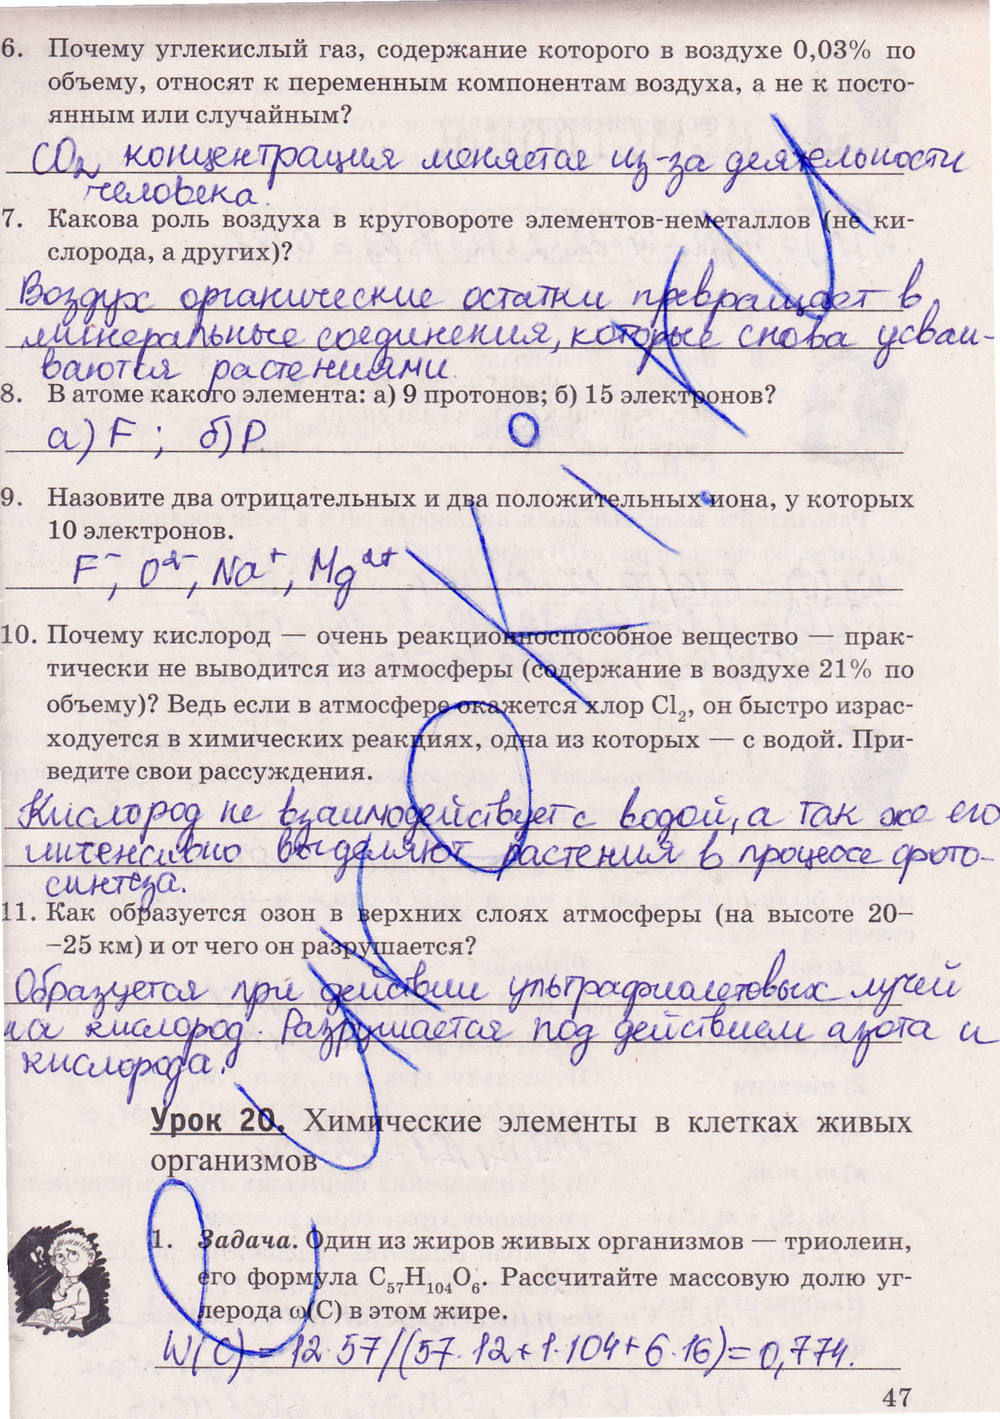 6. Почему углекислый газ, содержание которого в воздухе 0,03% по
объему, относят к переменным компонентам воздуха, а не к посто-
янным или случайным?
CO₂ концентрация меняется из-за деятельности
человека.
7. Какова роль воздуха в круговороте элементов-неметаллов (не ки-
слорода, а других)?
Воздух органические остатки превращает в
минеральные соединения, которые снова усваи-
ваются растениями.
8. В атоме какого элемента: а) 9 протонов; б) 15 электронов?
а) F ; б) P.
9. Назовите два отрицательных и два положительных иона, у которых
10 электронов.
F⁻, O²⁻, Na⁺, Mg²⁺
10. Почему кислород — очень реакционноспособное вещество — прак-
тически не выводится из атмосферы (содержание в воздухе 21% по
объему)? Ведь если в атмосфере окажется хлор Cl₂, он быстро израс-
ходуется в химических реакциях, одна из которых — с водой. При-
ведите свои рассуждения.
Кислород не взаимодействует с водой, а так же его
интенсивно выделяют растения в процессе фото-
синтеза.
11. Как образуется озон в верхних слоях атмосферы (на высоте 20–
–25 км) и от чего он разрушается?
Образуется при действии ультрафиолетовых лучей
на кислород. Разрушается под действием азота и
кислорода.
Урок 20. Химические элементы в клетках живых
организмов
1. Задача. Один из жиров живых организмов — триолеин,
его формула C₅₇H₁₀₄O₆. Рассчитайте массовую долю уг-
лерода ω(C) в этом жире.
W(C) = 12·57/(57·12+1·104+6·16)=0,774.
47